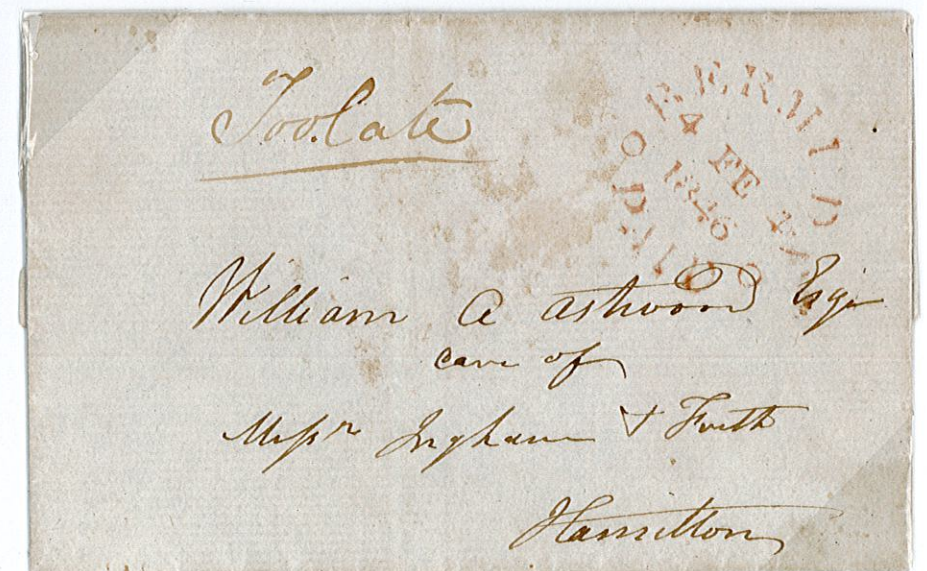 Too Late
BERMUDA
4 FE
1846
William A Astwood Esqr
care of
Messrs Ingham & Frith
Hamilton